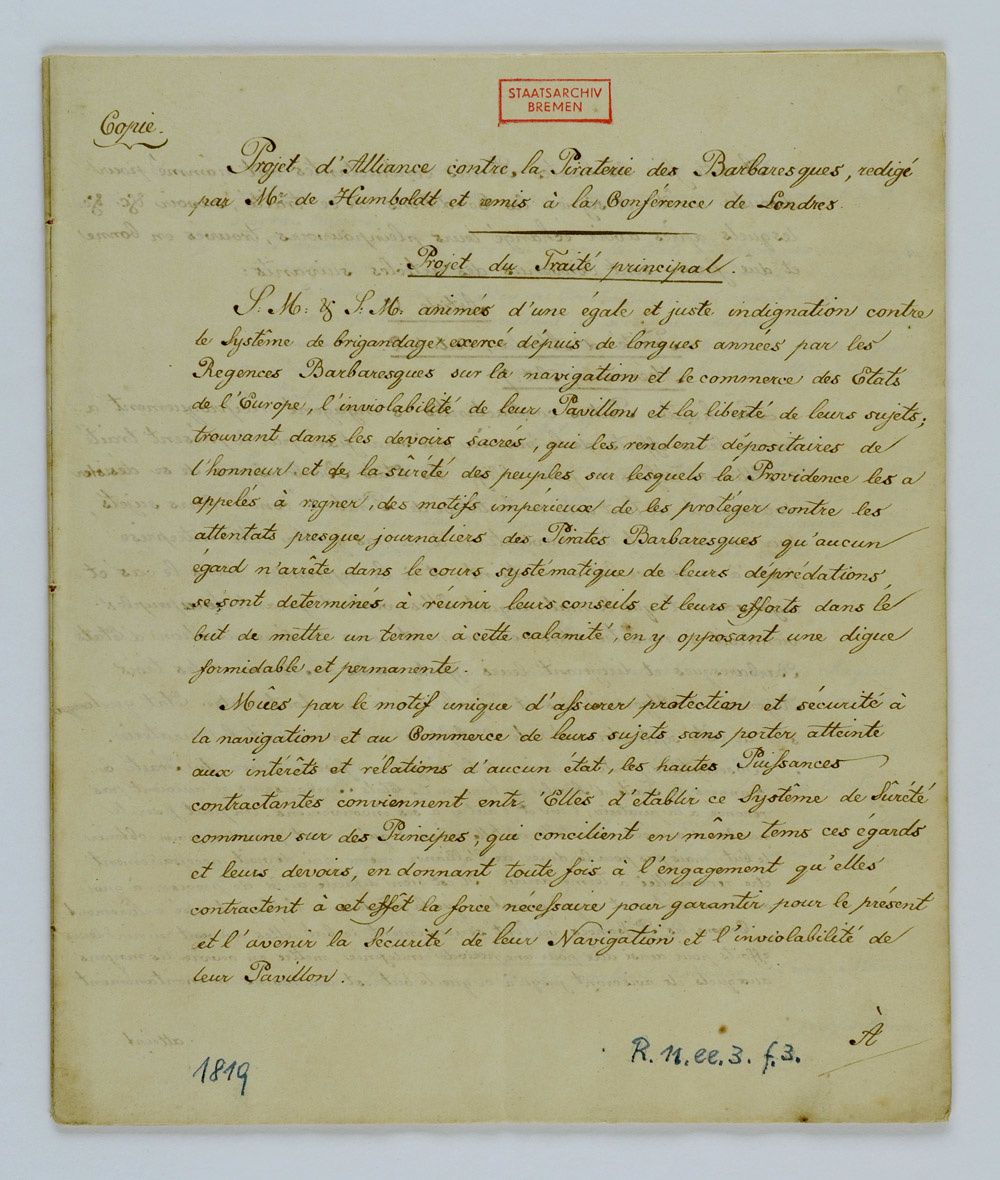 STAATSARCHIV
BREMEN
Copie.
Projet d'Alliance contre la Piraterie des Barbaresques, redigé
par Mr. de Humboldt et remis à la Conférence de Londres.
Projet du Traité principal.
S. M: & S. M. animés d'une égale et juste indignation contre
le Systême de brigandage exercé dépuis de longues années par les
Regences Barbaresques sur la navigation et le commerce des Etats
de l'Europe, l'inviolabilité de leur Pavillon et la liberté de leurs sujets;
trouvant dans les devoirs sacrés, qui les rendent dépositaires de
l'honneur et de la sûrété des peuples sur lesquels la Providence les a
appelés à regner, des motifs impérieux de les protéger contre les
attentats presque journaliers des Pirates Barbaresques qu'aucun
égard n'arrête dans le cours systématique de leurs déprédations,
se sont determinés à réunir leurs conseils et leurs efforts dans le
but de mettre un terme à cette calamité, en y opposant une digue
formidable et permanente.
Mûes par le motif unique d'assurer protection et sécurité à
la navigation et au Commerce de leurs sujets sans porter atteinte
aux intérêts et rélations d'aucun état, les hautes Puissances
contractantes conviennent entr'Elles d'établir ce Systême de Sûrété
commune sur des Principes, qui concilient en même tems ces égards
et leurs devoirs, en donnant toute fois à l'éngagement qu'elles
contractent à cet effêt la force nécessaire pour garantir pour le présent
et l'avenir la Sécurité de leur Navigation et l'inviolabilité de
leur Pavillon.
À
1819
R. 11. ee. 3. f. 3.